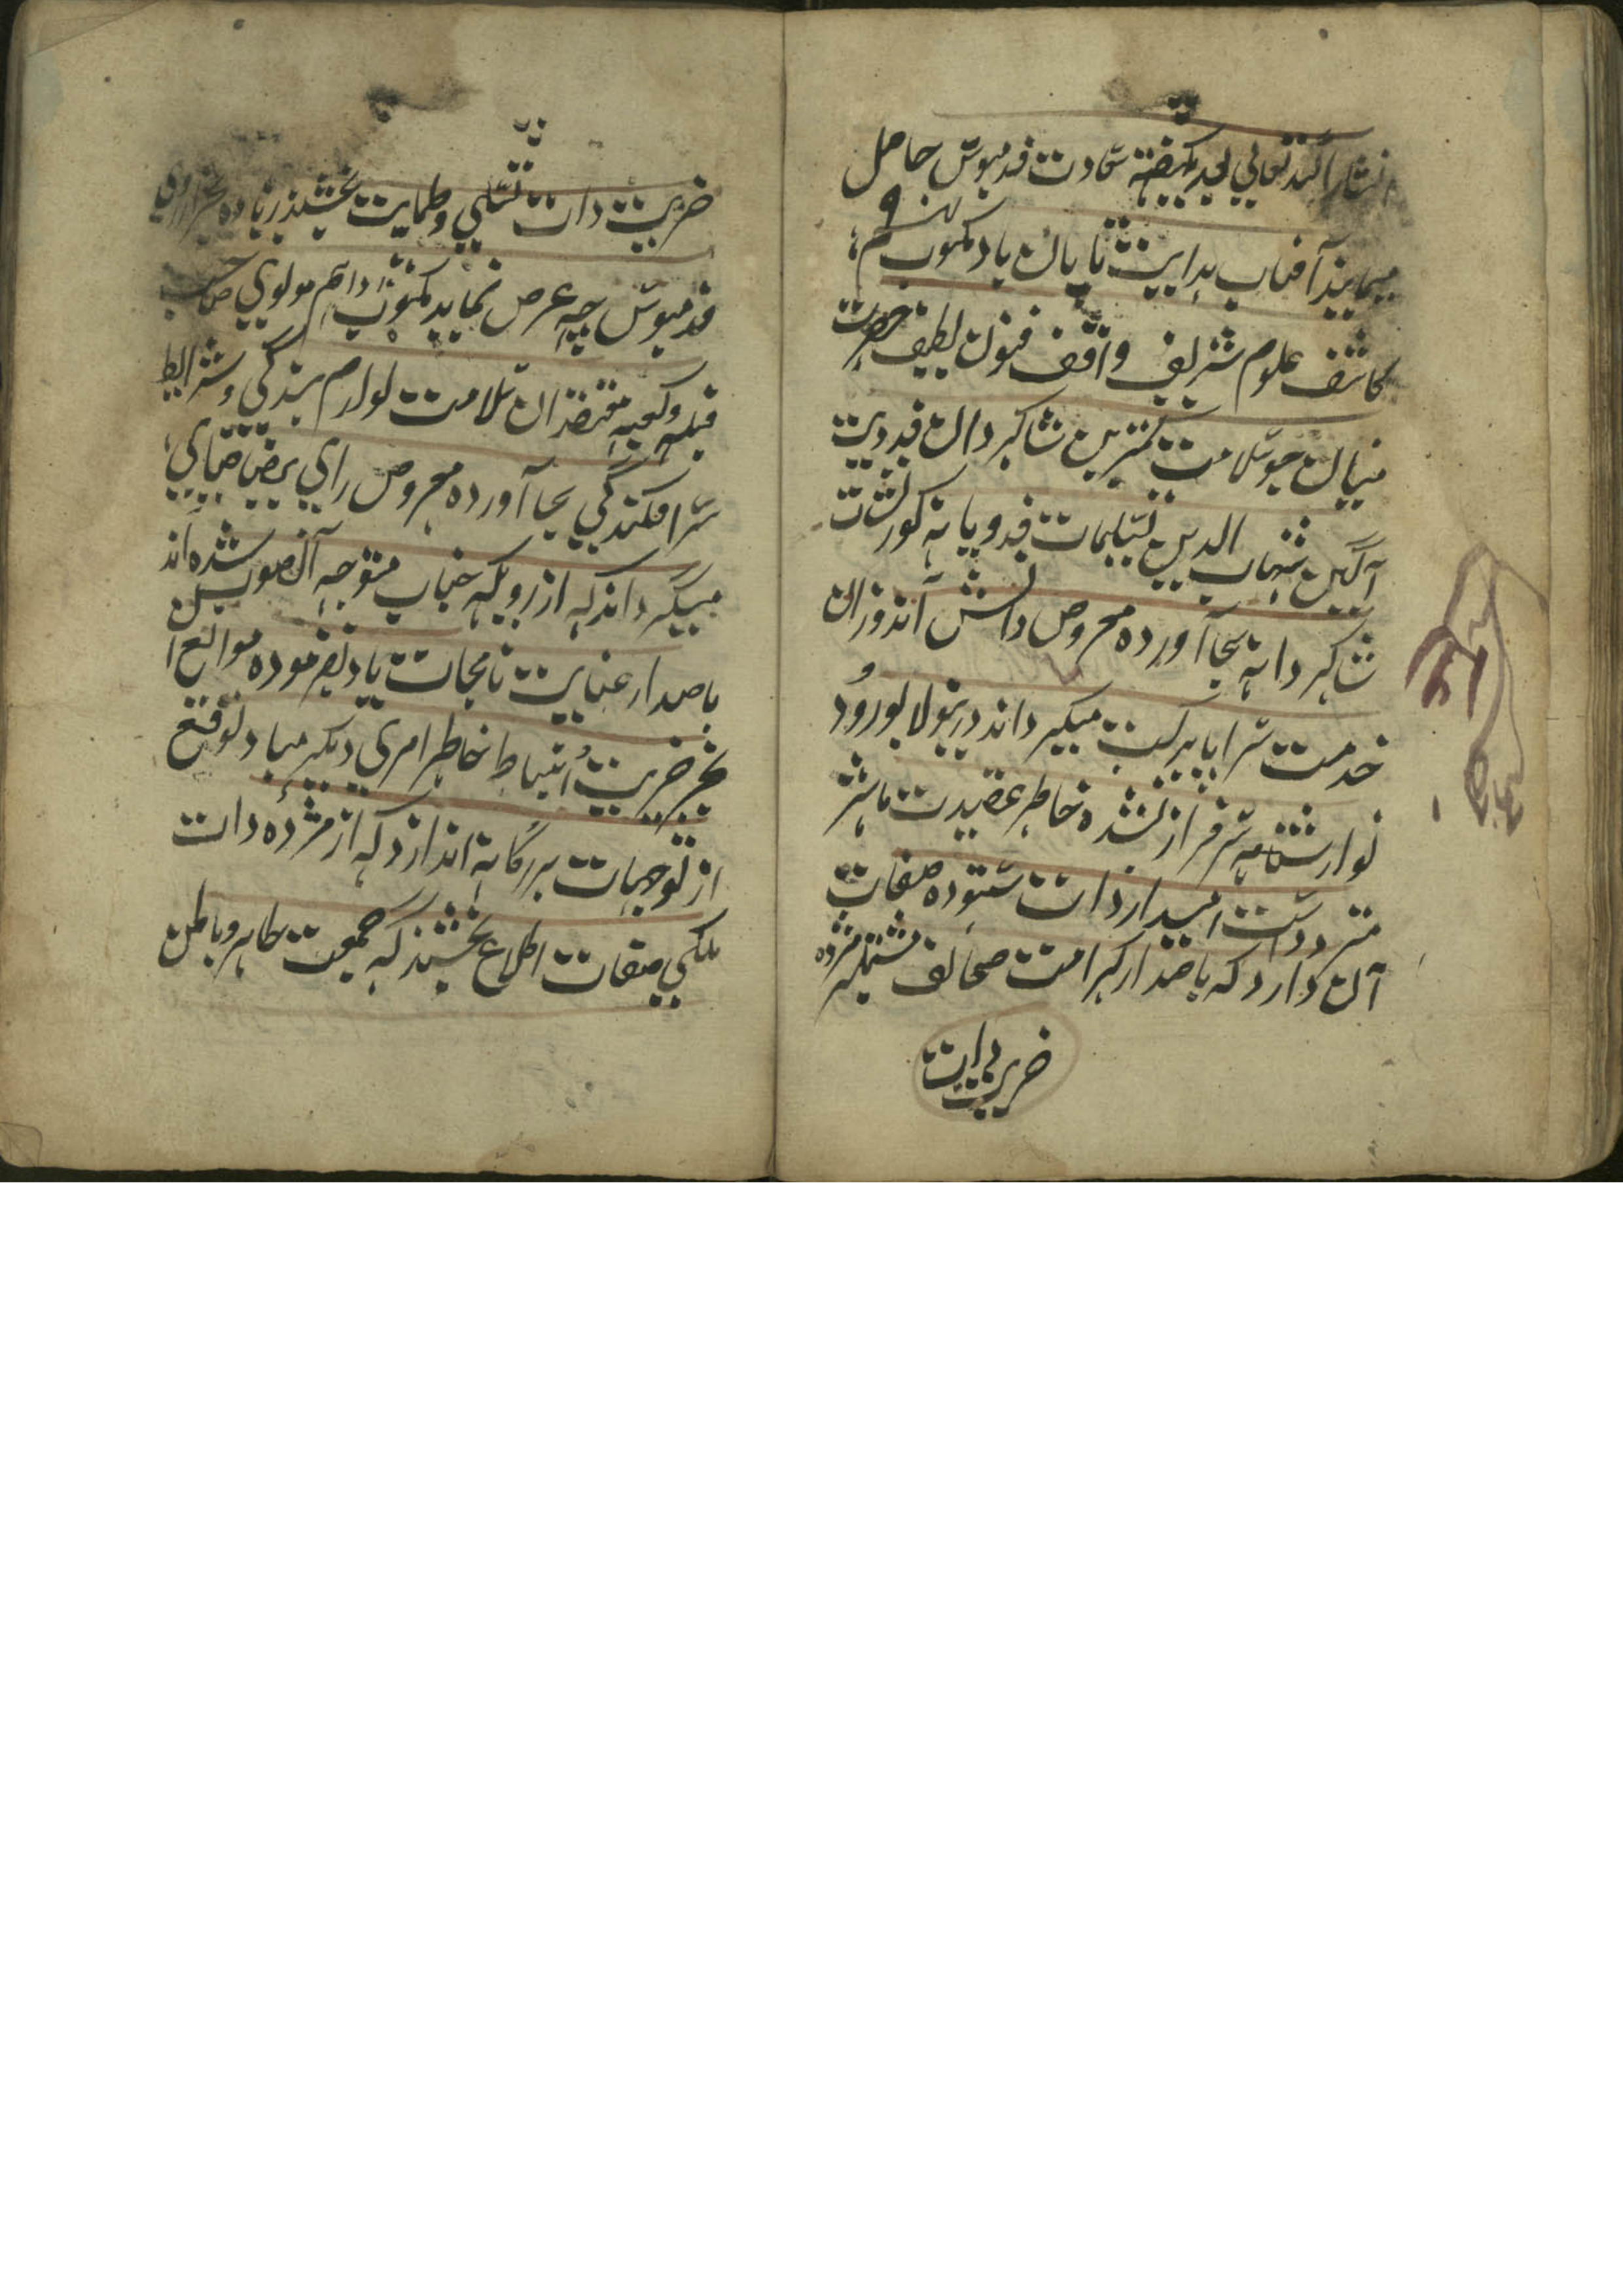 انشاراللہ تعالی بعد یکہفتہ سعادت قدمبوس حاصل
مینماید آفتاب ہدایت تابان باد مکتوب نہم
کاشف علوم شریف واقف فنون لطیف حضرت
میان جیو سلامت کمترین شاکردان فدویت
آگین شہاب الدین تسلیمات فدویانہ کورنشات
شاکردانہ بجا آورده معروض دانش آندوزان
خدمت سراپا برکت میکرداند درینولا بورود
نوازشنامہ سرفراز نشده خاطر عقیدت ماثر
متردد است امیدار ذات ستوده صفات
آن دارد کہ باصدار کرامت صحائف مشتملہ مژده
خریت ذات
خریت ذات تسلی وطمایت بخشند زیاده بجز آرزوی
قدمبوس چہ عرض نماید مکتوب دہم مولوی صاحب
قبلہ وکعبہ معتقدان سلامت لوازم بندکی وشرایط
سرافکندکی بجا آورده معروض رای بیضا ضیای
میکرداند کہ از رویکہ جناب متوجہ آنصوب شده اند
باصدار عنایت نامجات یاد نفرموده موانع آن
بجز خریت انبساط خاطر امری دیکر مباد توقع
از توجہات بزرکانہ انداز د کہ از مژده ذات
ملکی صفات اطلاع بخشند کہ جمعیت ظاہر وباطن